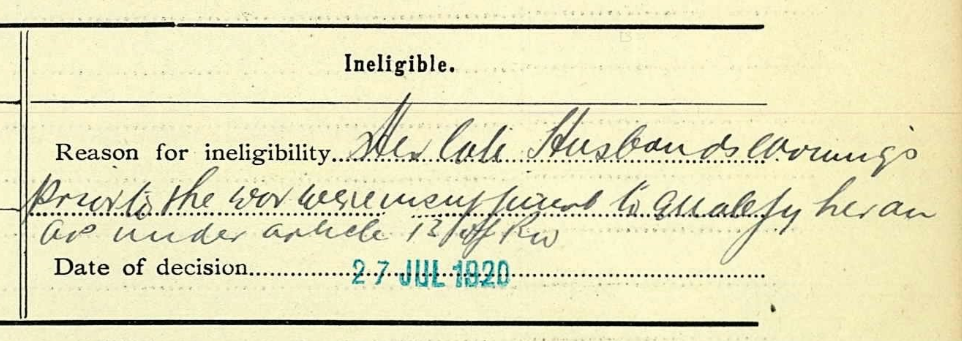 Ineligible.
Reason for ineligibility Her late Husbands earnings
prior to the war were insufficient to qualify her an
AP under article 13 of RW
Date of decision 27 JUL 1920